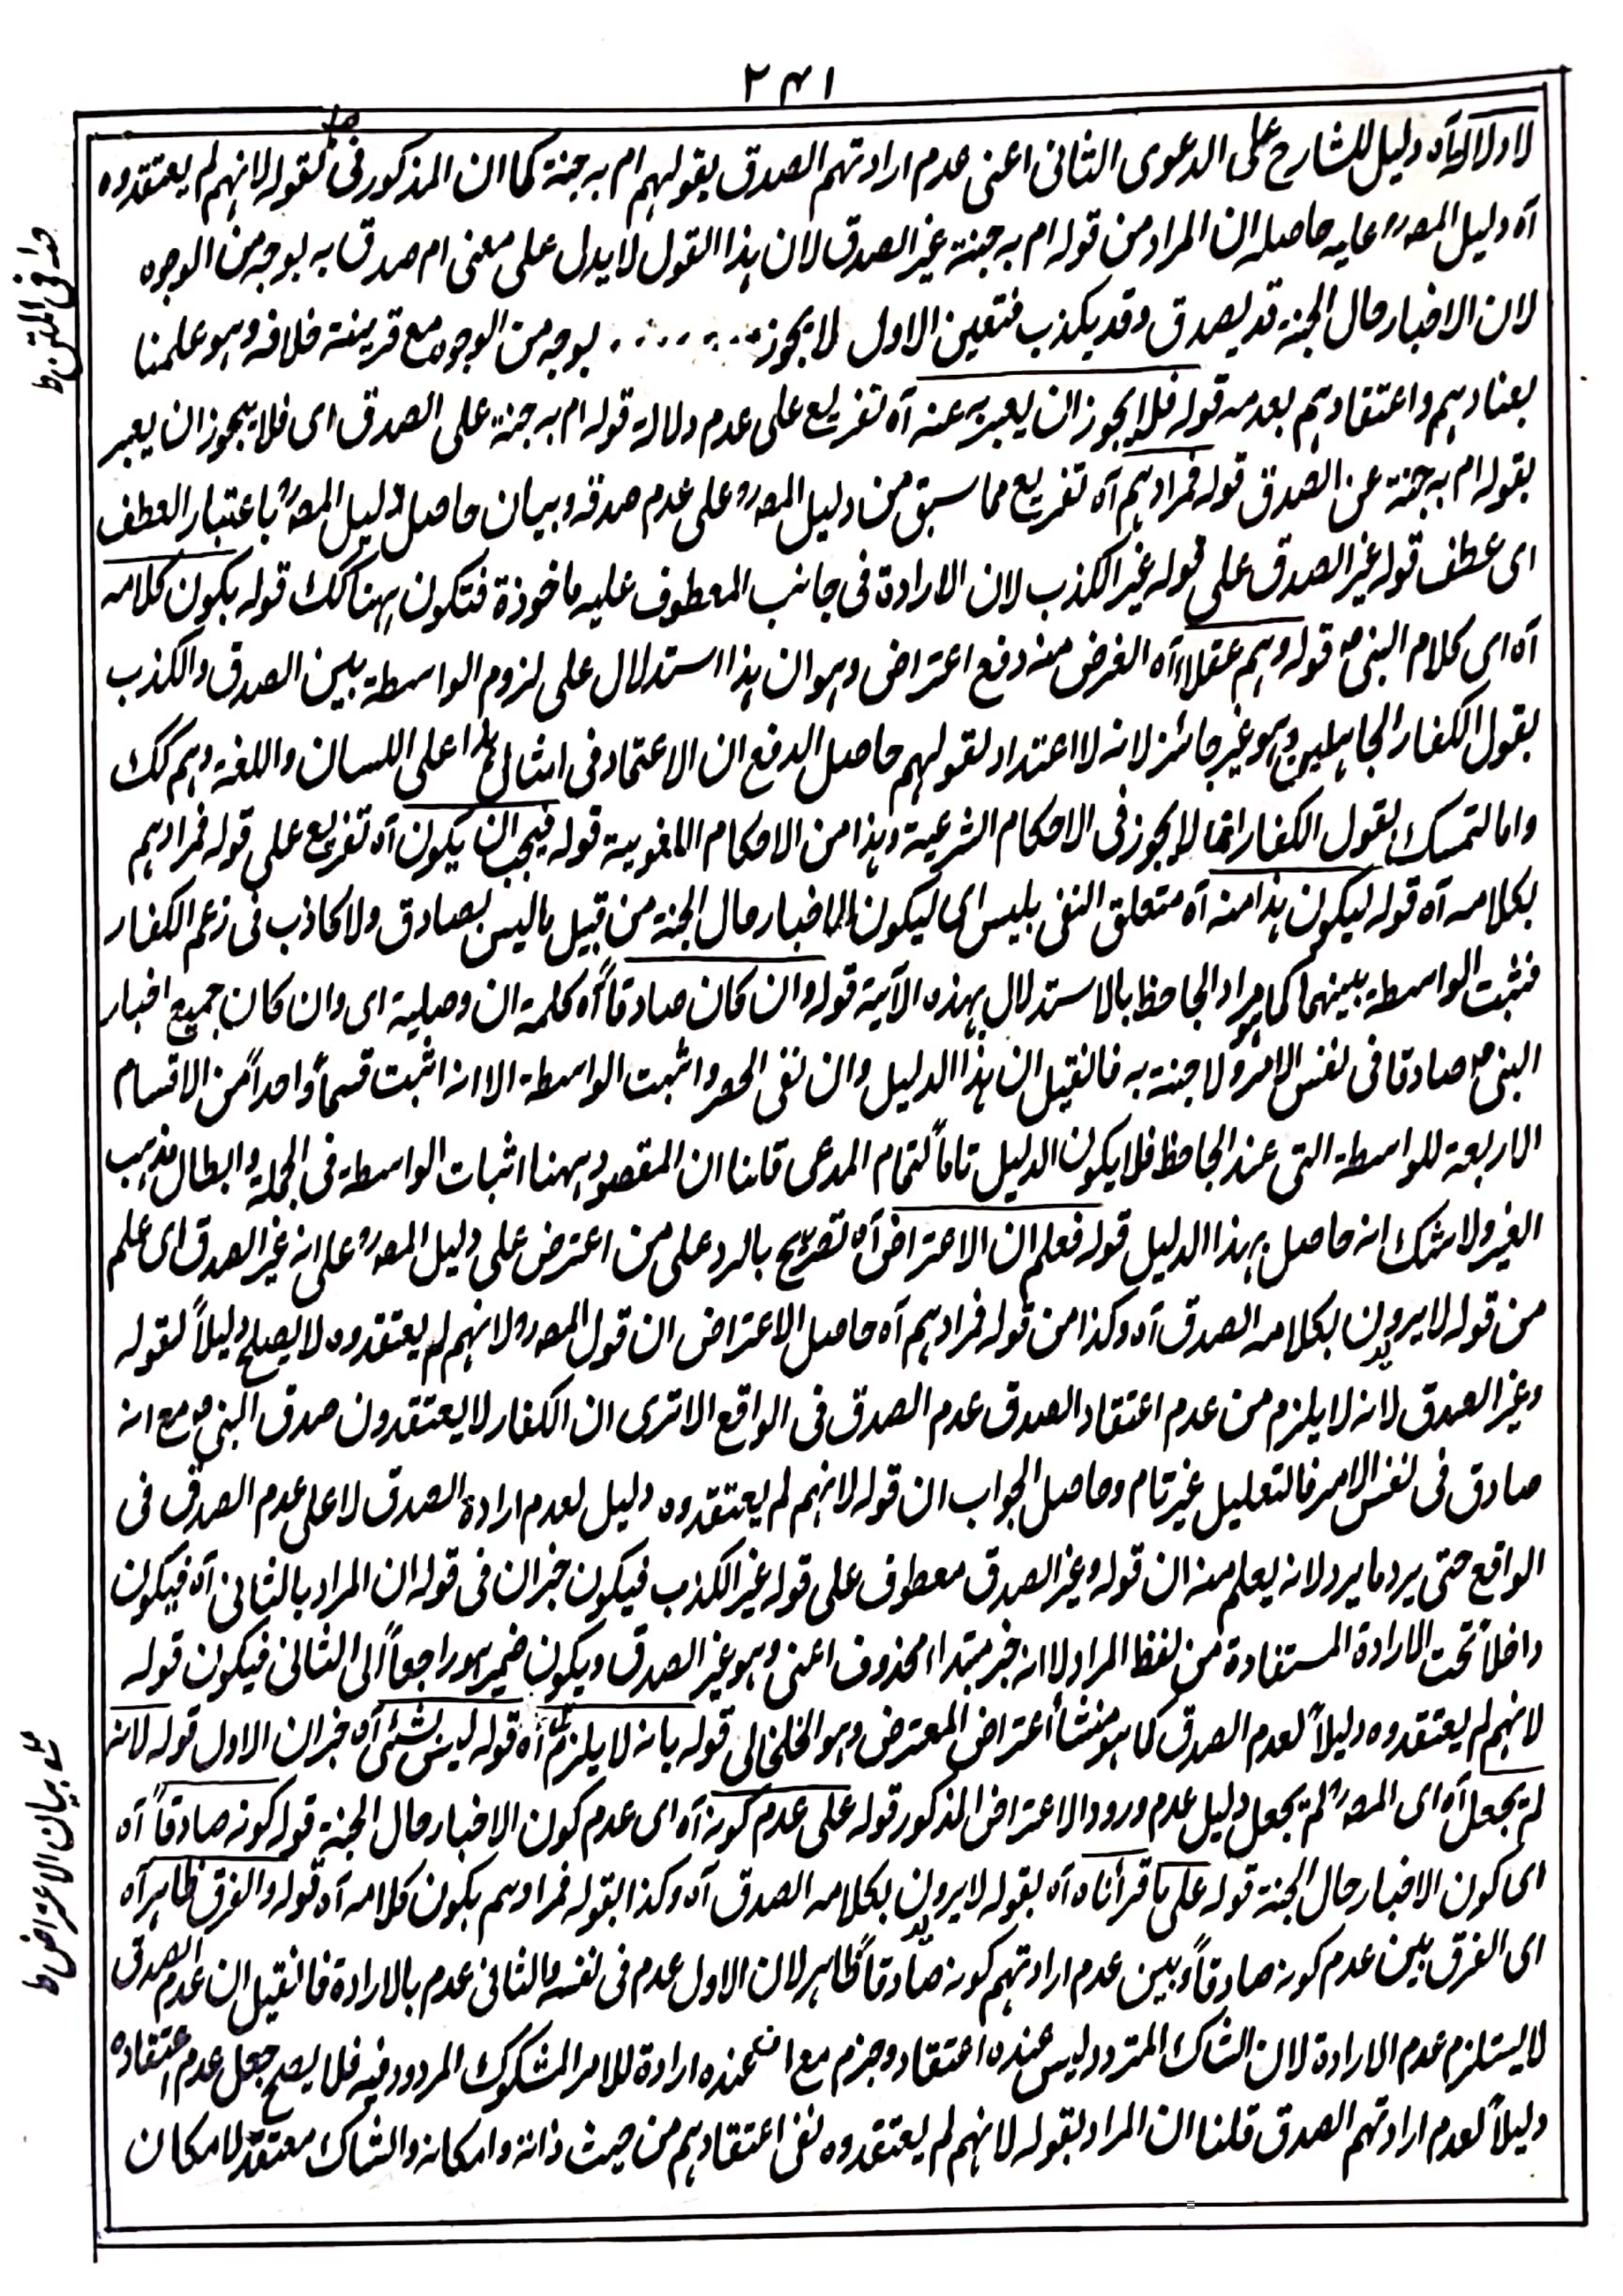 ٢٤١
لا دلالة آه دليل للشارح على الدعوى الثانى اعنى عدم ارادتهم الصدق بقولهم ام به جنة كما ان المذكور فى كقوله لانهم لم يعتقدوه
آه دليل المصرح عليه حاصله ان المراد من قوله ام به جنة غير الصدق لان هذا القول لا يدل على معنى ام صدق به بوجه من الوجوه
لان الاخبار حال الجنة قد يصدق وقد يكذب فتعين الاول لا يجوز ....... بوجه من الوجوه مع قرينة خلافه وهو علمنا
بعنادهم واعتقادهم بعدمه قوله فلا يجوز ان يعبر به عنه آه تفريع على عدم دلالة قوله ام به جنة على الصدق اى فلا يجوز ان يعبر
بقوله ام به جنة عن الصدق قوله فمرادهم آه تفريع مما سبق من دليل المصرح على عدم صدقه وبيان حاصل دليل المصرح باعتبار العطف
اى عطف قوله غير الصدق على قوله غير الكذب لان الارادة فى جانب المعطوف عليه ماخوذة فتكون ههنا كك قوله بكون كلامه
آه اى كلام النبى ص قوله وهم عقلاء آه الغرض منه دفع اعتراض وهو ان هذا استدلال على لزوم الواسطة بين الصدق والكذب
بقول الكفار الجاهلين وهو غير جائز لانه لا اعتداد لقولهم حاصل الدفع ان الاعتماد فى امثال هذا على اللسان واللغة وهم كك
واما التمسك بقول الكفار انما لا يجوز فى الاحكام الشرعية وهذا من الاحكام اللغوية قوله فيجب ان يكون آه تفريع على قوله فمرادهم
بكلامه آه قوله ليكون هذا منه آه متعلق النفى بليس اى ليكون الاخبار حال الجنة من قبيل ما ليس بصادق ولا كاذب فى زعم الكفار
فثبت الواسطة بينهما كما هو مراد الجاحظ بالاستدلال بهذه الآية قوله وان كان صادقاً آه كلمة ان وصلية اى وان كان جميع اخبار
النبى ص صادقا فى نفس الامر ولا جنة به فانقيل ان هذا الدليل وان نفى الحصر واثبت الواسطة الا انه اثبت قسماً واحداً من الاقسام
الاربعة للواسطة التى عند الجاحظ فلا يكون الدليل تاماً لتمام المدعى قلنا ان المقصود ههنا اثبات الواسطة فى الجملة وابطال مذهب
الغير ولا شك انه حاصل بهذا الدليل قوله فعلم ان الاعتراض آه تصريح بالرد على من اعترض على دليل المصرح على انه غير الصدق اى علم
من قوله لا يريدون بكلامه الصدق آه وكذا من قوله فمرادهم آه حاصل الاعتراض ان قول المصرح لانهم لم يعتقدوه لا يصلح دليلاً لقوله
وغير الصدق لانه لا يلزم من عدم اعتقاد الصدق عدم الصدق فى الواقع الا ترى ان الكفار لا يعتقدون صدق النبى ص مع انه
صادق فى نفس الامر فالتعليل غير تام وحاصل الجواب ان قوله لانهم لم يعتقدوه دليل لعدم ارادة الصدق لا على عدم الصدق فى
الواقع حتى يرد ما يرد لانه يعلم منه ان قوله وغير الصدق معطوف على قوله غير الكذب فيكون خبر ان فى قوله ان المراد بالثانى آه فيكون
داخلاً تحت الارادة المستفادة من لفظ المراد لا انه خبر مبتداء محذوف اعنى وهو غير الصدق ويكون ضمير هو راجعاً الى الثانى فيكون قوله
لانهم لم يعتقدوه دليلاً لعدم الصدق كما هو منشأ اعتراض المعترض وهو الخلخالى قوله بانه لا يلزم آه قوله ليس بشئ آه خبر ان الاول قوله لانه
لم يجعل آه اى المصرح لم يجعل دليل عدم ورود الاعتراض المذكور قوله على عدم كونه آه اى عدم كون الاخبار حال الجنة قوله كونه صادقاً آه
اى كون الاخبار حال الجنة قوله على ما قرأناه آه بقوله لا يريدون بكلامه الصدق آه وكذا بقوله فمرادهم بكون كلامه آه قوله والفرق ظاهر آه
اى الفرق بين عدم كونه صادقاً وبين عدم ارادتهم كونه صادقاً ظاهر لان الاول عدم فى نفسه والثانى عدم بالارادة فانقيل ان عدم الصدق
لا يستلزم عدم الارادة لان الشاك المتردد ليس عنده اعتقاد وجزم مع ان عنده ارادة للامر المشكوك المردود فيه فلا يصح جعل عدم اعتقاده
دليلاً لعدم ارادتهم الصدق قلنا ان المراد بقوله لانهم لم يعتقدوه نفى اعتقادهم من حيث ذاته وامكانه والشاك معتقد لامكان
فى المتن ط
بيان الاعتراض ط